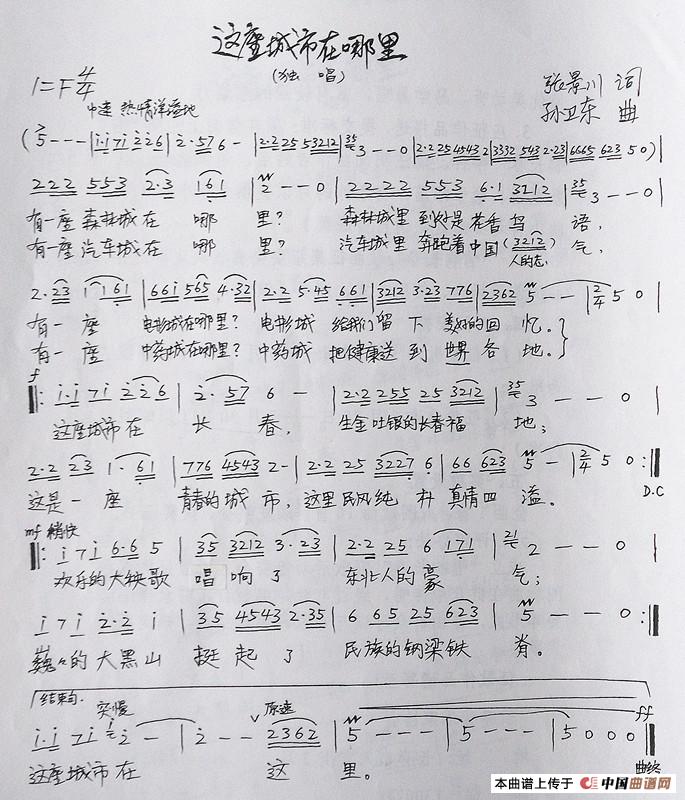 这座城市在哪里
(独 唱)
1=F 4/4
张景川 词
中速 热情洋溢地
孙卫东 曲
(5 - - - | i·i 7i 2 2 6 | 2· 57 6 - | 2·2 25 53212 | 35 3 - - 0 | 2·2 25 4543 2 | 3332 543 2·23 | 6665 623 5 0) |
222 553 2·3 161 | 2 - - 0 | 2222 553 6·1 3212 | 35 3 - - 0 |
有一座 森林城在 哪 里? 森林城里 到处是 花香鸟 语,
有一座 汽车城在 哪 里? 汽车城里 奔跑着 中国 (3212) 气,
人的志
2·23 1 161 | 66i 565 4·32 | 2·2 5·45 661 | 3212 3·23 776 | 2362 5 - - | 2/4 5 0 |
有一 座 电影城在哪里? 电影城 给我们留 下 美好的回 忆。
有一 座 中药城在哪里? 中药城 把健康送 到 世界 各 地。
f
‖: i·i 7i 2 2 6 | 2· 57 6 - | 2·2 255 25 3212 | 35 3 - - 0 |
这座城市在 长 春, 生金吐银的长春福 地;
2·2 23 1· 61 | 776 4543 2 - | 2·2 25 3227 6 | 66 623 5 - | 2/4 5 0 :‖
这是一 座 青春的城 市, 这里民风纯 朴 真情四 溢。 D.C
mf 稍快
‖: i 7i 6·6 5 | 35 3212 3·23 | 2·2 25 6 171 | 21 2 - - 0 |
欢乐的大秧歌 唱响了 东北人的豪 气;
i 7i 2·2 i | 35 4543 2·35 | 6 65 25 623 | 5 - - 0 :‖
巍々的大黑山 挺起了 民族的钢梁铁 脊。
结束句. 突慢 原速 ff
i·i 7i 2 - | 2 - - 2362 | 5 - - - | 5 - - - | 5 0 0 0 ‖
这座城市在 这 里。 曲终
本曲谱上传于 中国曲谱网